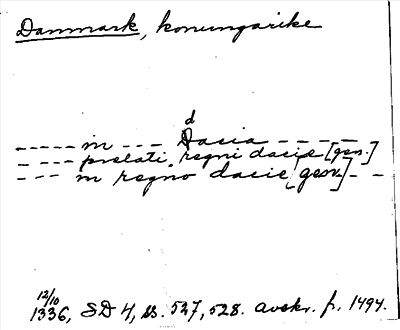 Danmark, konungarike
d
----- in --- Dacia ------
---- prelati regni dacie [gen.]
---- in regno dacie [gen.] --
12/10
1336, SD 4, ss. 527, 528. avskr. fr. 1494.